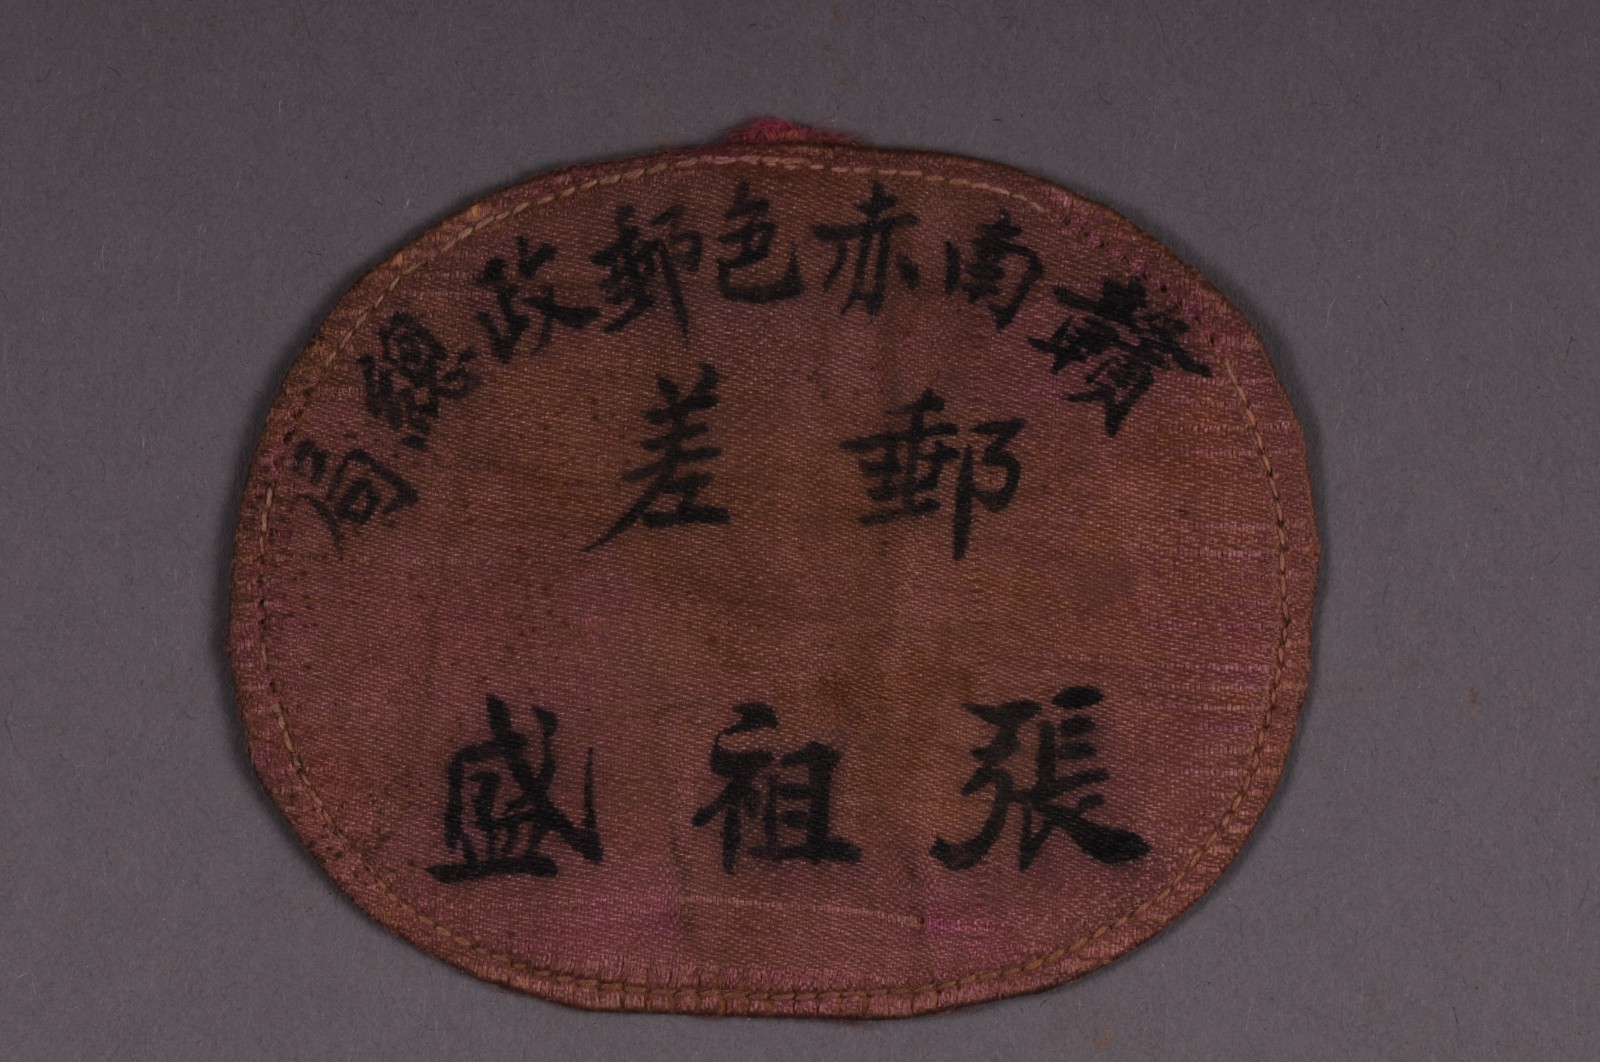 贛南赤色郵政總局
郵差
張祖盛